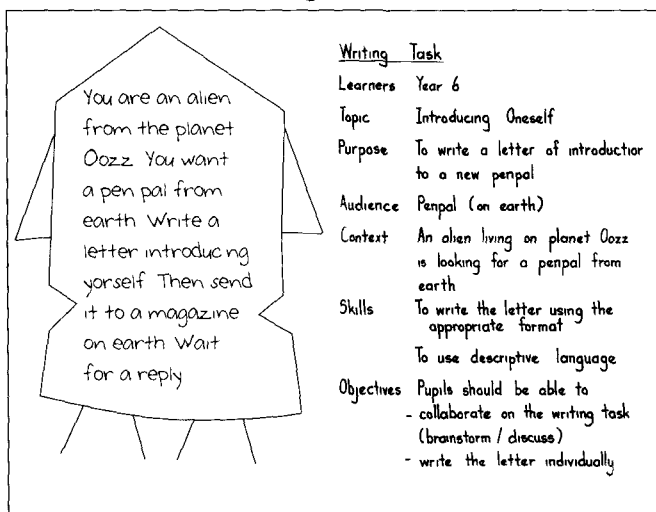 You are an alien
from the planet
Oozz You want
a pen pal from
earth Write a
letter introducing
yorself Then send
it to a magazine
on earth Wait
for a reply
Writing Task
Learners Year 6
Topic Introducing Oneself
Purpose To write a letter of introduction
to a new penpal
Audience Penpal (on earth)
Context An alien living on planet Oozz
is looking for a penpal from
earth
Skills To write the letter using the
appropriate format
To use descriptive language
Objectives Pupils should be able to
- collaborate on the writing task
(brainstorm / discuss)
- write the letter individually